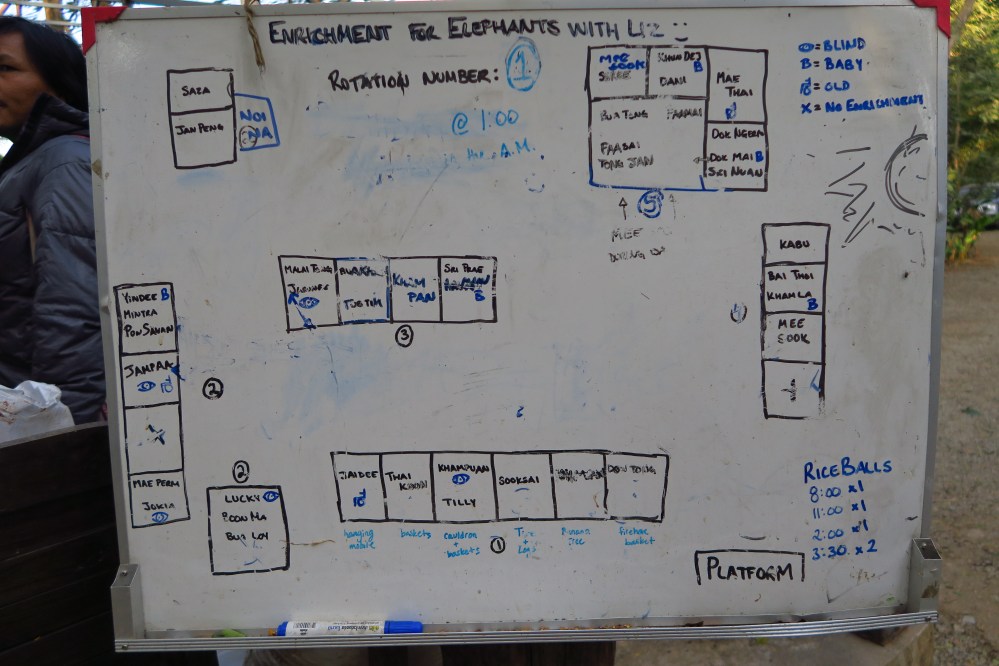 ENRICHMENT FOR ELEPHANTS WITH LIZ
ROTATION NUMBER: 1
@ 1:00
A.M.
= BLIND
B = BABY
= OLD
X = NO ENRICHMENT
SAZA
JAN PENG
NOI
NA
MEE
SOOK
KHUN DEJ
B
DANI
MAE
THAI
BUA TONG
FAA MAI
FAASAI
TONG JAN
DOK NGERN
DOK MAI B
SRI NUAN
5
MEE
KABU
BAI THAI
KHAMLA
B
MEE
SOOK
4
MALAI TONG
KHAM
PAN
SRI PRAE
B
3
YINDEE B
MINTRA
PON SAWAN
JANPAA
2
MAE PERM
JOKIA
2
LUCKY
POON MA
BUA LOY
JAIDEE
THAI
KHAMPUAN
TILLY
SOOKSAI
DOW TONG
hanging
mobile
baskets
cauldron
+
baskets
1
Tire
+
Logs
Banana
Tree
firehose
basket
PLATFORM
RICE BALLS
8:00 x1
11:00 x1
2:00 x1
3:30 x2